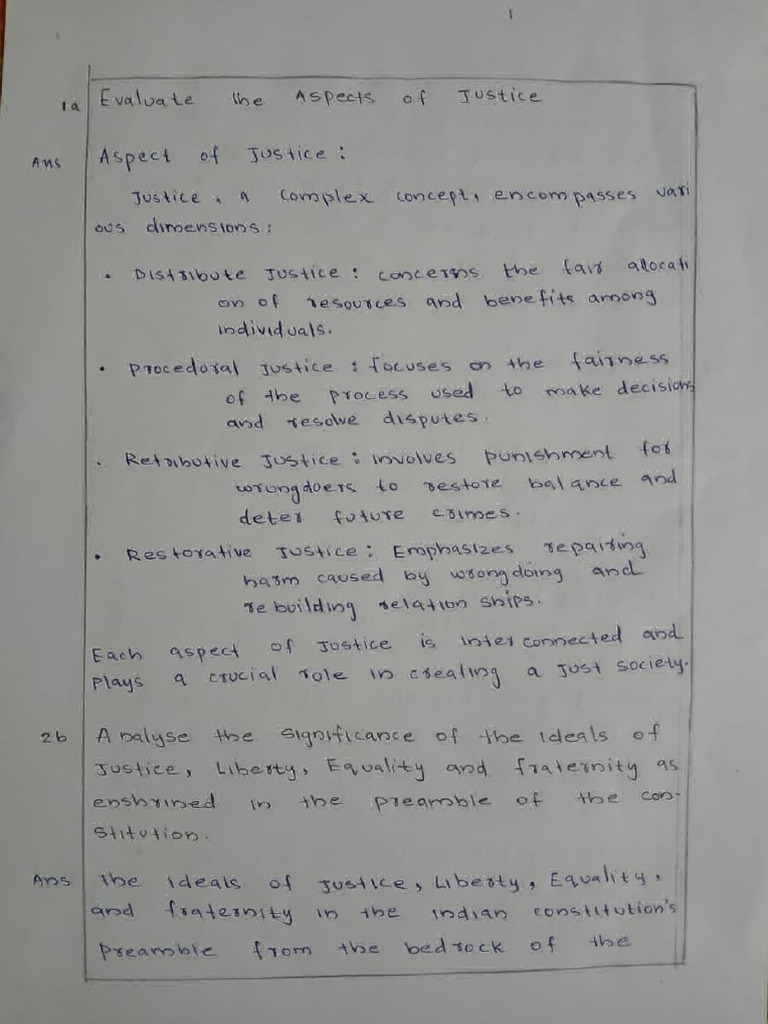 1
1a Evaluate the Aspects of Justice
Ans Aspect of Justice :
Justice, a complex concept, encompasses vari
ous dimensions :
• Distribute Justice : concerns the fair allocati
on of resources and benefits among
individuals.
• Procedoral Justice : focuses on the fairness
of the process used to make decisions
and resolve disputes.
• Retributive Justice : involves punishment for
wrongdoers to restore balance and
deter future crimes.
• Restorative Justice : Emphasizes repairing
harm caused by wrongdoing and
rebuilding relation ships.
Each aspect of Justice is interconnected and
plays a crucial role in creating a just society.
2b Analyse the significance of the ideals of
Justice, Liberty, Equality and fraternity as
enshrined in the preamble of the con-
stitution.
Ans The ideals of Justice, Liberty, Equality,
and fraternity in the indian constitution's
Preamble from the bedrock of the